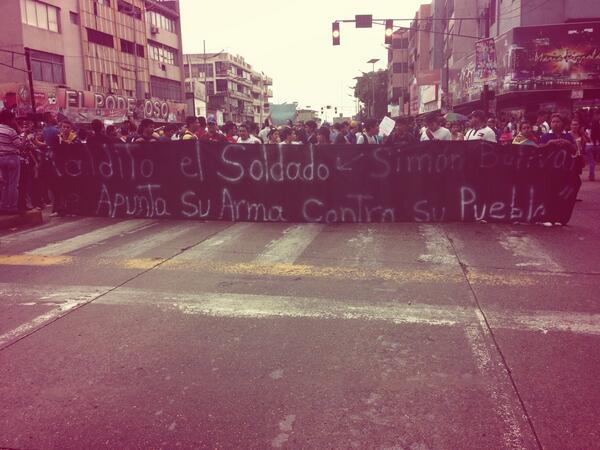 EL PODEROSO
Maldito el Soldado Simón Bolívar
Que Apunta Su Arma Contra Su Pueblo